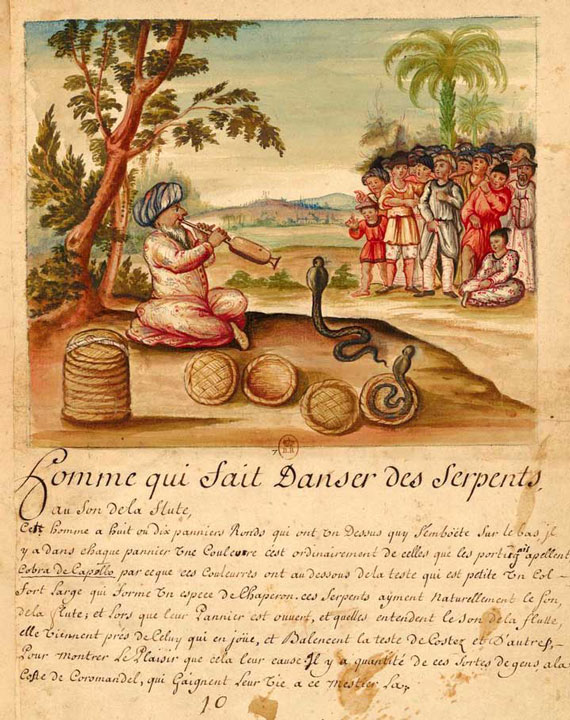 Homme qui fait Danser des Serpents,
au Son de la flute,
Cett homme a huit ou dix panniers Ronds qui ont Un Dessus quy S'emboëte Sur le bas, Il
y a dans chaque pannier Une Couleuvre cest ordinairement de celles qui les portugais apellent
Cobra de Capello, par ce que ces Couleuvres ont au dessous de la teste qui est petite Un Col
Fort Large qui forme Un espece de Chaperon. ces Serpents ayment Naturellement le Son
de la flute; et Lors que leur Pannier est ouvert, et quelles entendent le Son de la flutte,
elle Viennent près de Celuy qui en joüe, et Balencent la teste de Costez et D'autres,
Pour montrer Le Plaisir que cela leur cause. Il y a quantité de ces Sortes de gens a la
Coste de Coromandel, qui Gaignent Leur Vie a ce mestier La
10
7